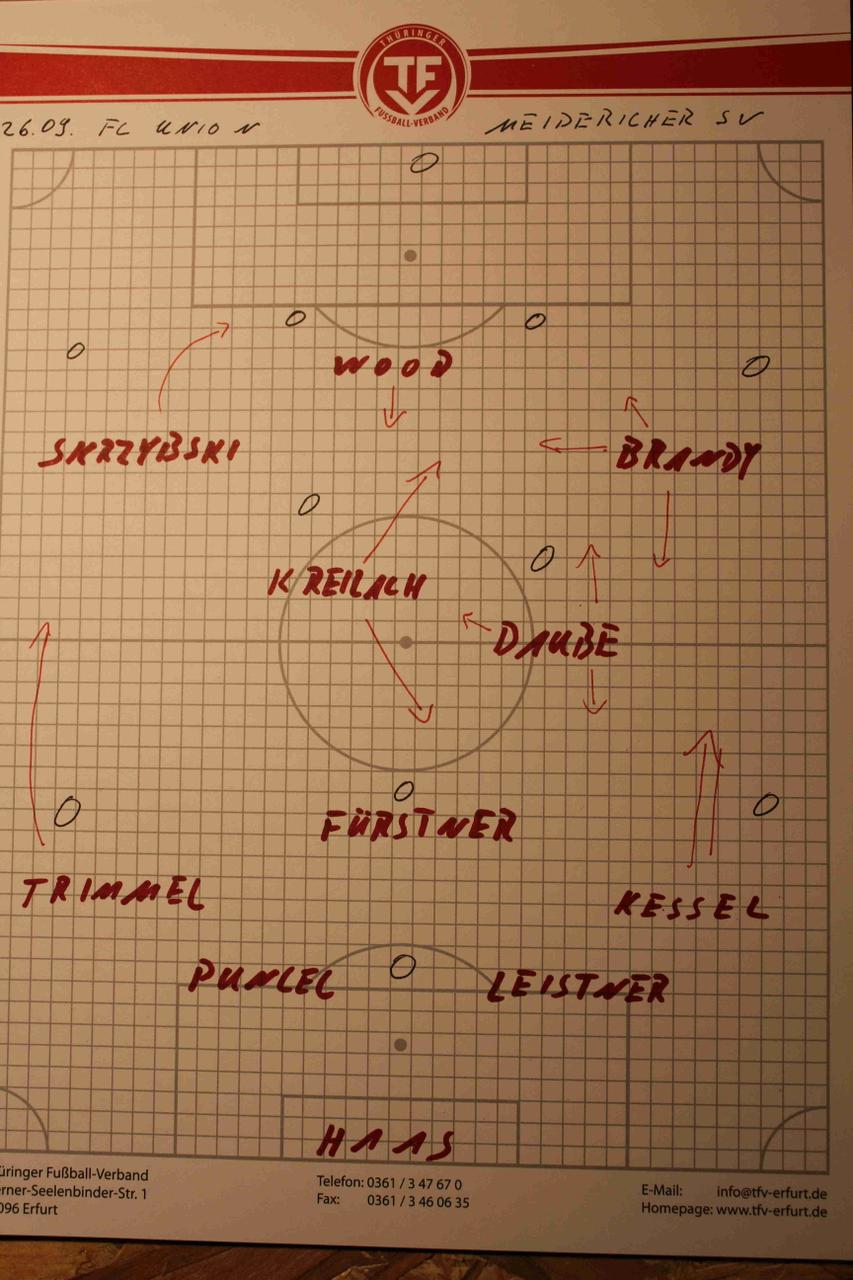 THÜRINGER
TFV
FUSSBALL-VERBAND
26.09. FC UNION MEIDERICHER SV
WOOD
SKRZYBSKI BRANDY
KREILACH
DAUBE
FÜRSTNER
TRIMMEL KESSEL
PUNCEC LEISTNER
HAAS
üringer Fußball-Verband
erner-Seelenbinder-Str. 1
096 Erfurt
Telefon: 0361 / 3 47 67 0
Fax: 0361 / 3 46 06 35
E-Mail: info@tfv-erfurt.de
Homepage: www.tfv-erfurt.de